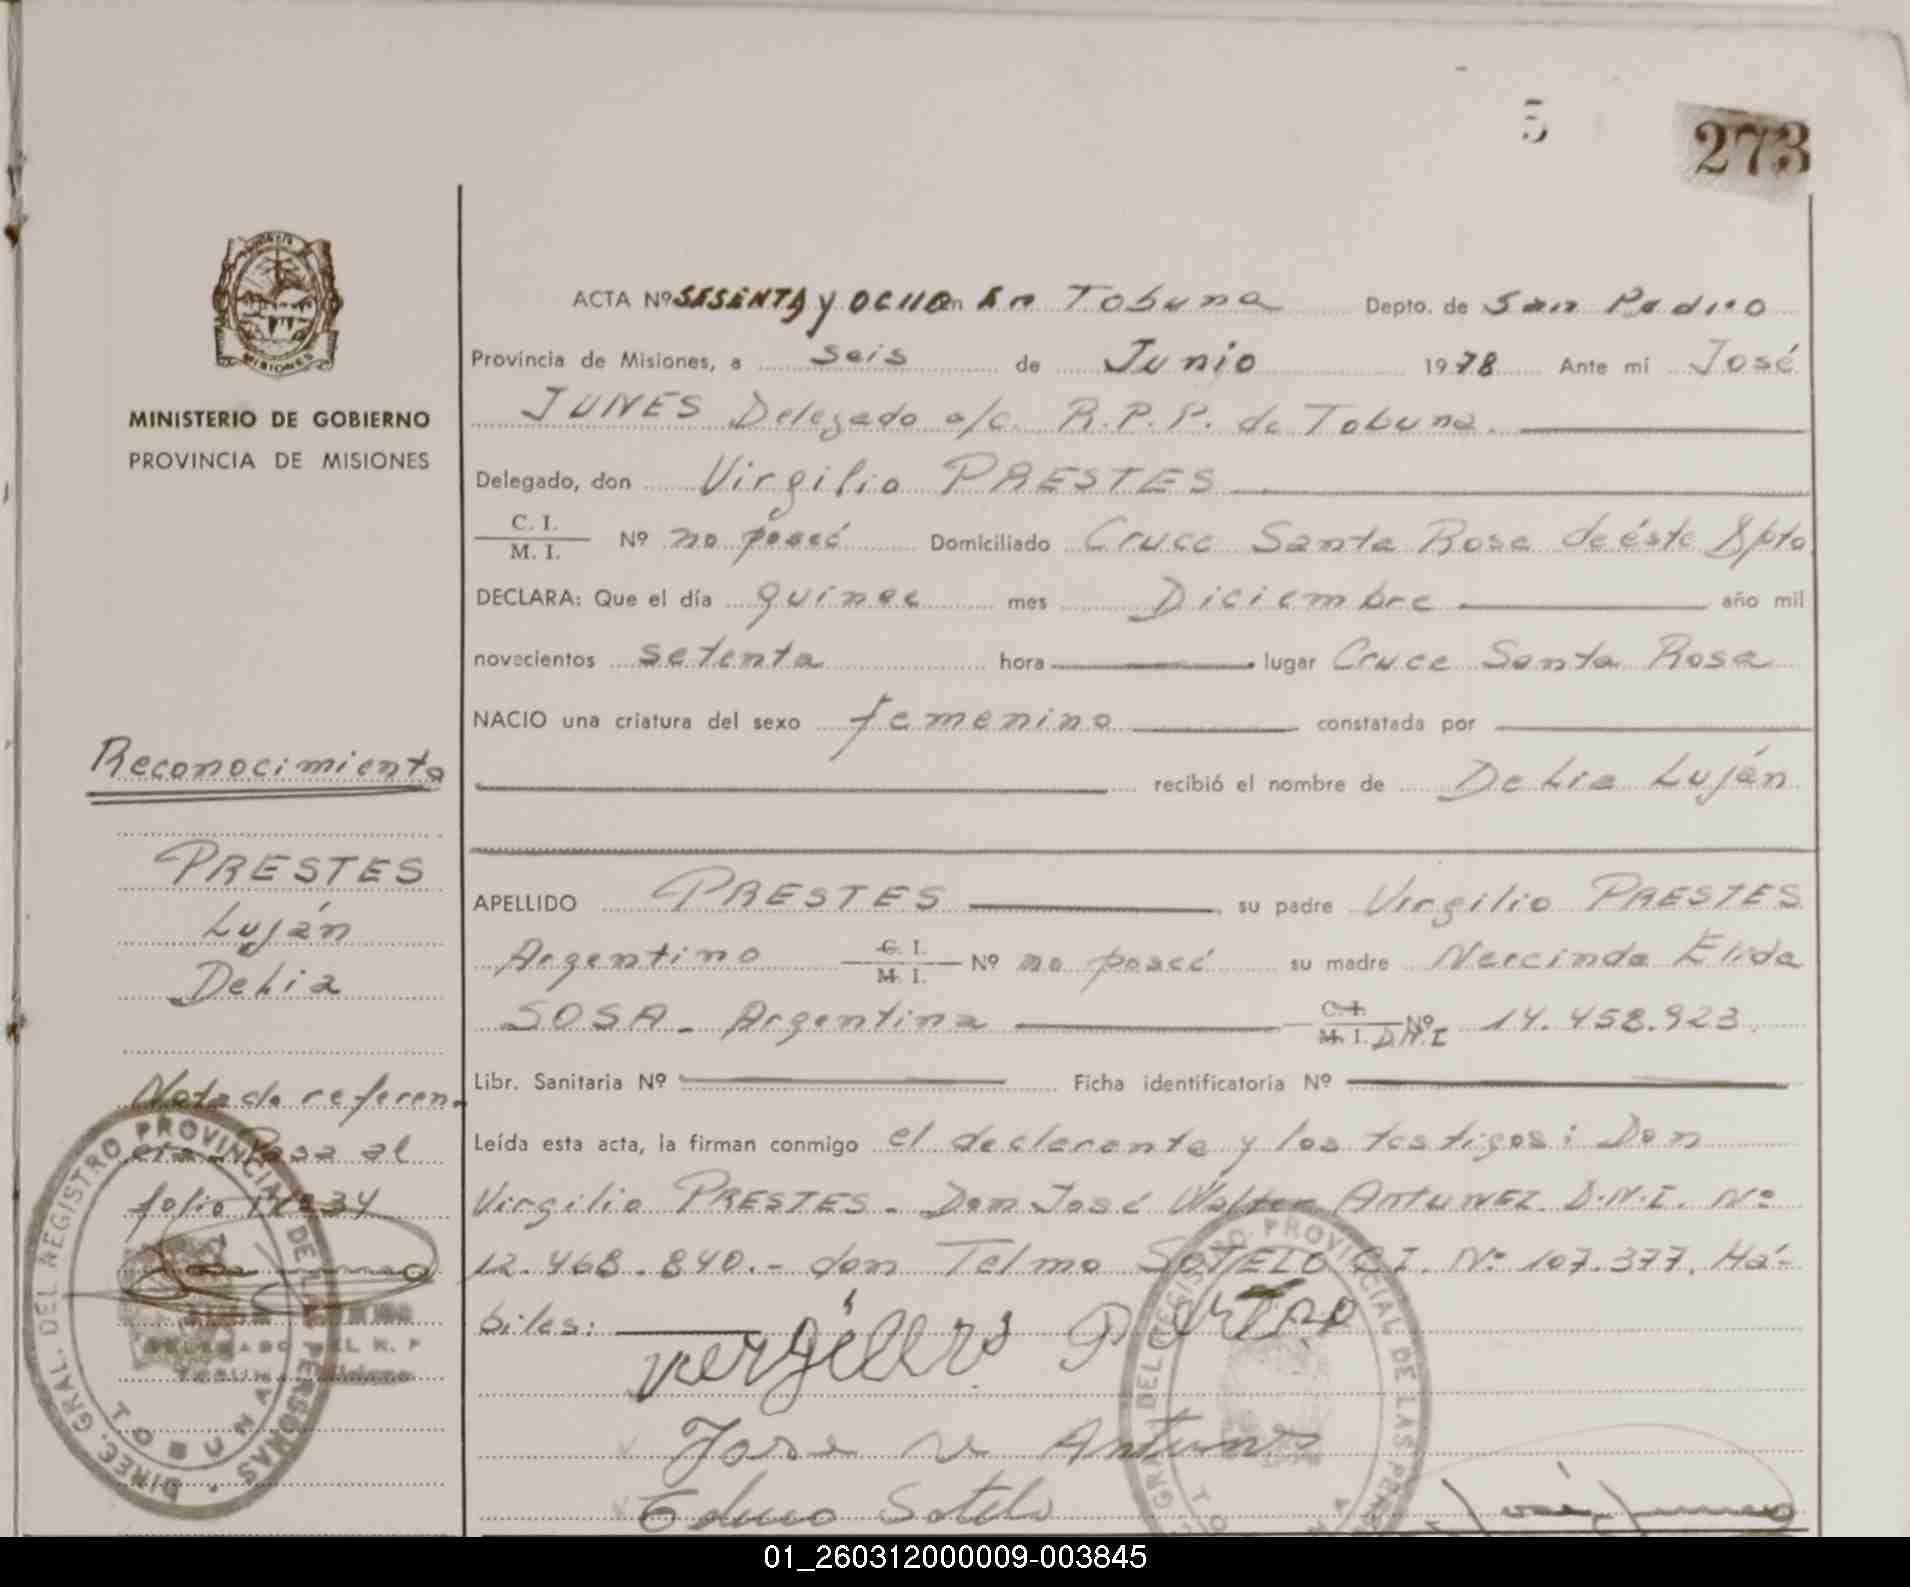 5 273
ACTA Nº SESENTA y OCHO en En Tobuna Depto. de San Pedro
Provincia de Misiones, a seis de Junio 1978 Ante mí José
JUNES Delegado a/c. R.P.P. de Tobuna.
MINISTERIO DE GOBIERNO
PROVINCIA DE MISIONES
Delegado, don Virgilio PRESTES
C. I.
M. I. Nº no poseé Domiciliado Cruce Santa Rosa de éste Dpto
DECLARA: Que el día quince mes Diciembre año mil
novecientos setenta hora lugar Cruce Santa Rosa
NACIO una criatura del sexo femenino constatada por
recibió el nombre de Delia Luján
Reconocimiento
PRESTES
Luján
Delia
APELLIDO PRESTES su padre Virgilio PRESTES
Argentino C. I. M. I. Nº no poseé su madre Nercinda Elida
SOSA - Argentina C. I. M. I. D.N.I Nº 14.458.923.
Libr. Sanitaria Nº Ficha identificatoria Nº
Nota de referen-
cia - Pasa al
folio Nº 234
Leída esta acta, la firman conmigo el declarante y los testigos: Don
Virgilio PRESTES - Don José Walter ANTUNEZ. D.N.I. Nº
12.468.840.- don Telmo SOTELO C.I. Nº 107.377. Há-
biles:
José Antunes
Sotelo
DIREC. GRAL. DEL REGISTRO PROVINCIAL DE LAS PERSONAS
TOBUNA
GRAL. DEL REGISTRO PROVINCIAL DE LAS
01_260312000009-003845